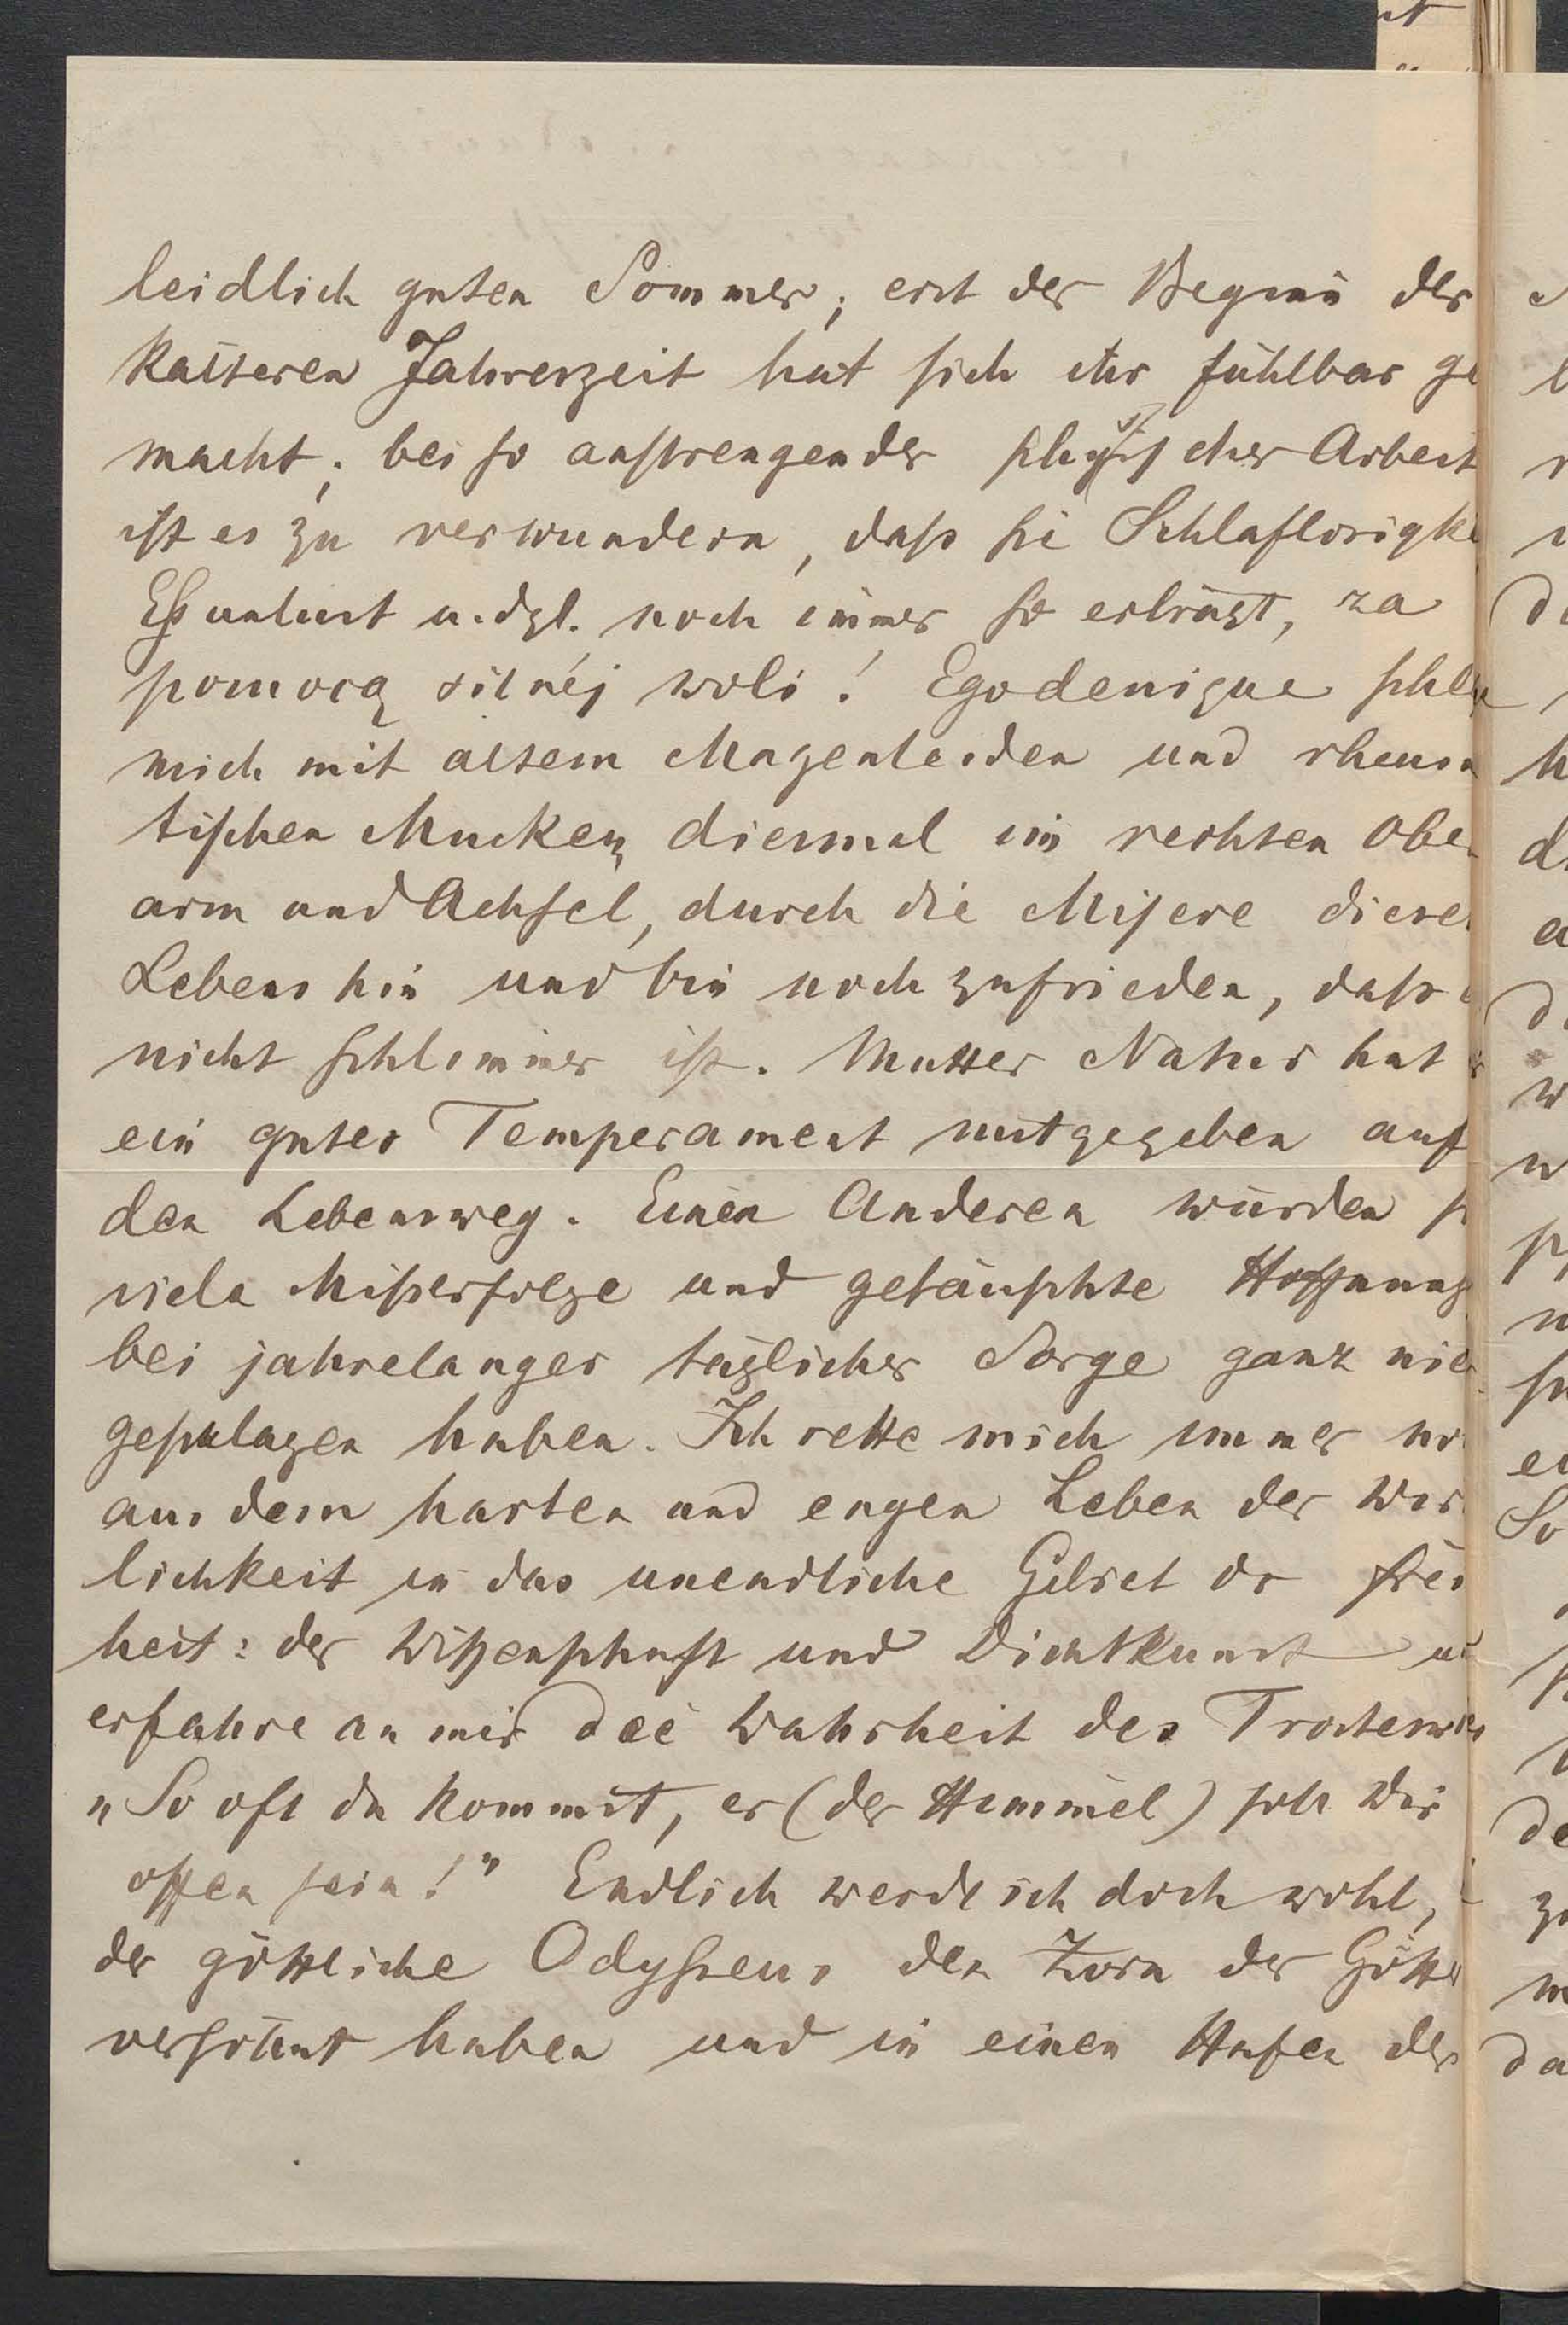 leidlich guten Sommer; erst der Beginn der
kälteren Jahreszeit hat sich ihr fühlbar ge
macht; bei so anstrengender physischer Arbeit
ist es zu verwundern, dass sie Schlaflosigke
Essunlust u. dgl. noch immer so erträgt, za
pomocą silnéj woli! Ego denique schlep
mich mit altem Magenleiden und rheuma
tischen Mucken, diesmal im rechten Ober
arm und Achsel, durch die Misere dieses
Lebens hin und bin noch zufrieden, dass
nicht schlimmer ist. Mutter Natur hat
ein gutes Temperament mitgegeben auf
den Lebensweg. Einen Anderen würden so
viele Misserfolge und getäuschte Hoffnung
bei jahrelanger täglicher Sorge ganz nied
geschlagen haben. Ich rette mich immer no
aus dem harten und engen Leben der Wirk
lichkeit in das unendliche Gebiet der Frei
heit: der Wissenschaft und Dichtkunst u
erfahre an mir die Wahrheit des Trostwor
„So oft du kommst, er (der Himmel) soll Dir
offen sein!" Endlich werde ich doch wohl,
der göttliche Odysseus den Zorn der Götter
versöhnt haben und in einen Hafen der